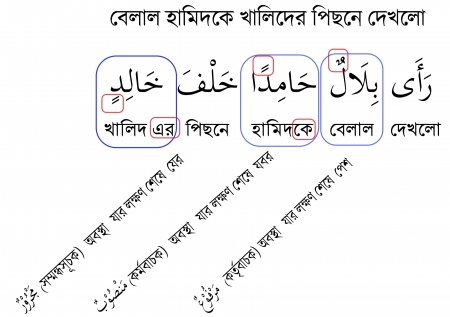 বেলাল হামিদকে খালিদের পিছনে দেখলো
رَأَى بِلَالٌ حَامِدًا خَلْفَ خَالِدٍ
খালিদ এর পিছনে হামিদকে বেলাল দেখলো
مَجْرُوْرٌ (সম্মন্ধসূচক) অবস্থা যার লক্ষণ শেষে যের
مَنْصُوْبٌ (কর্মবাচক) অবস্থা যার লক্ষণ শেষে যবর
مَرْفُوْعٌ (কর্তৃবাচক) অবস্থা যার লক্ষণ শেষে পেশ